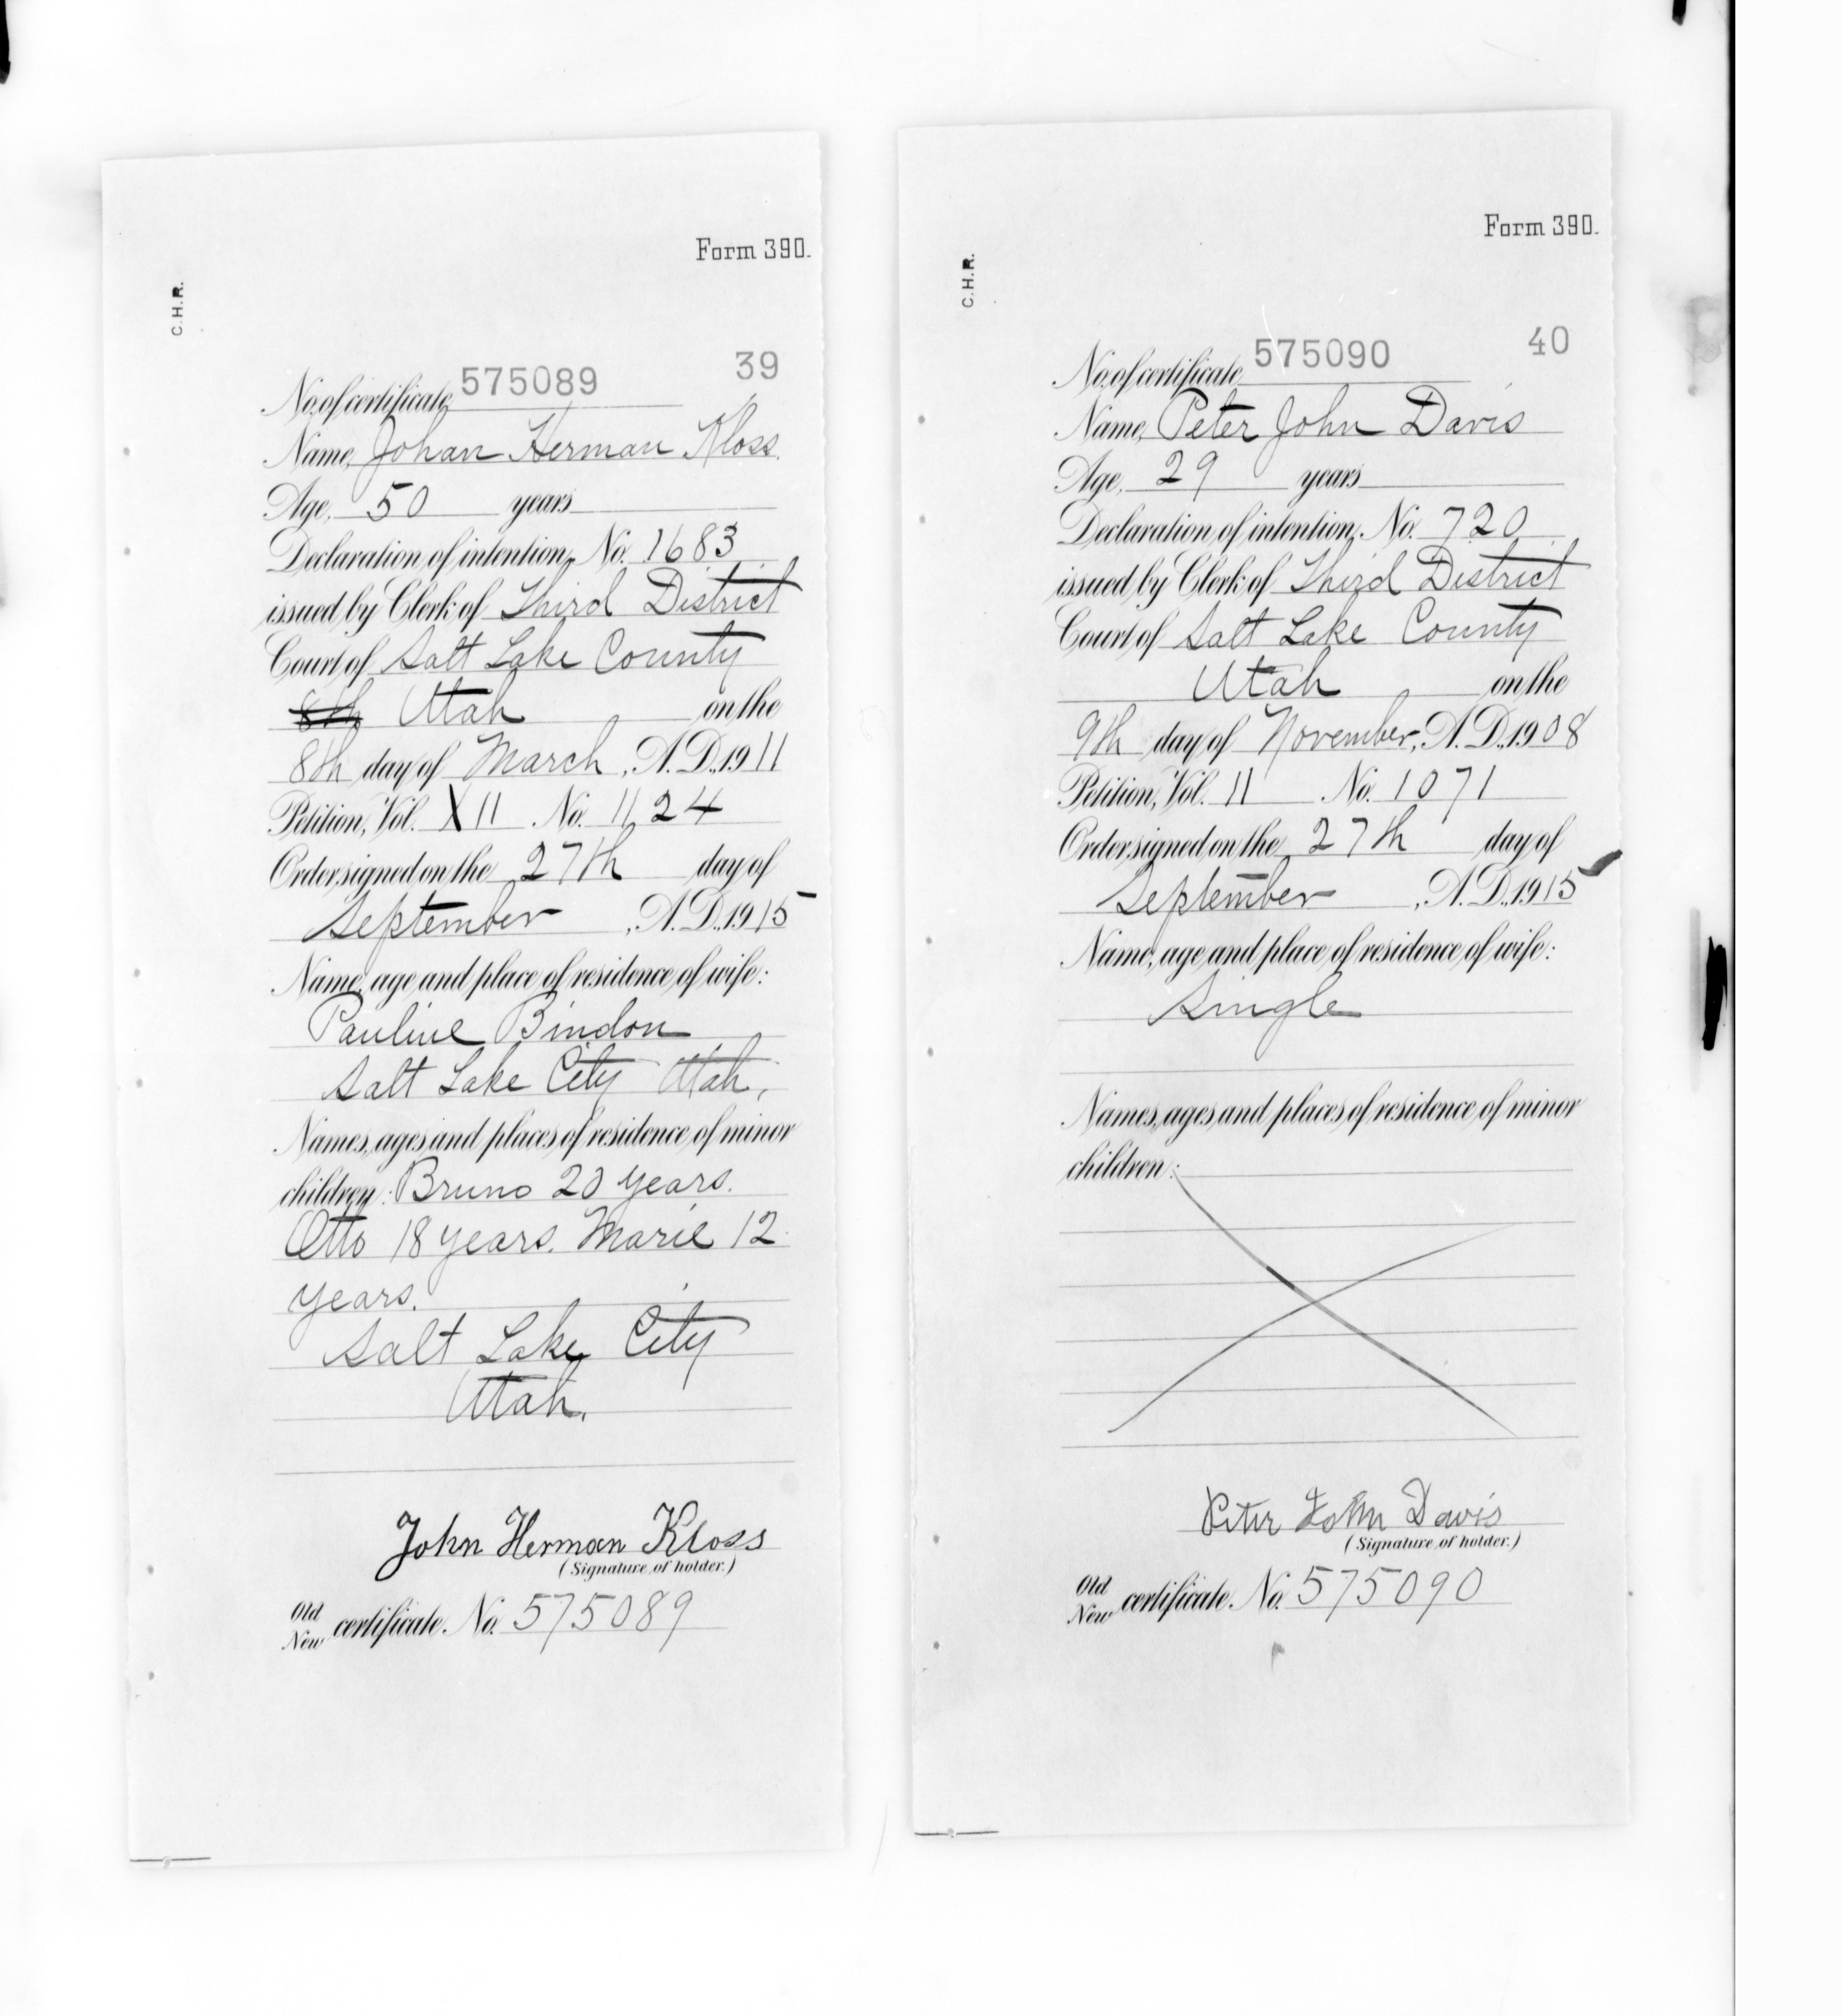 Form 390.
C.H.R.
39
No. of certificate, 575089
Name, Johan Herman Kloss.
Age, 50 years
Declaration of intention, No. 1683
issued by Clerk of Third District
Court of Salt Lake County
8th Utah on the
8th day of March, A. D., 1911
Petition, Vol. X11 No. 1124
Order signed on the 27th day of
September, A. D., 1915
Name, age and place of residence of wife:
Pauline Bindon
Salt Lake City Utah,
Names, ages and places of residence of minor
children: Bruno 20 years.
Otto 18 years. Marie 12
years.
Salt Lake City
Utah.
John Herman Kloss
(Signature of holder.)
Old
New certificate. No. 575089
Form 390.
C.H.R.
40
No. of certificate, 575090
Name, Peter John Davis
Age, 29 years
Declaration of intention, No. 720
issued by Clerk of Third District
Court of Salt Lake County
Utah on the
9th day of November, A. D., 1908
Petition, Vol. 11 No. 1071
Order signed on the 27th day of
September, A. D., 1915
Name, age and place of residence of wife:
Single
Names, ages and places of residence of minor
children:
Peter John Davis
(Signature of holder.)
Old
New certificate. No. 575090